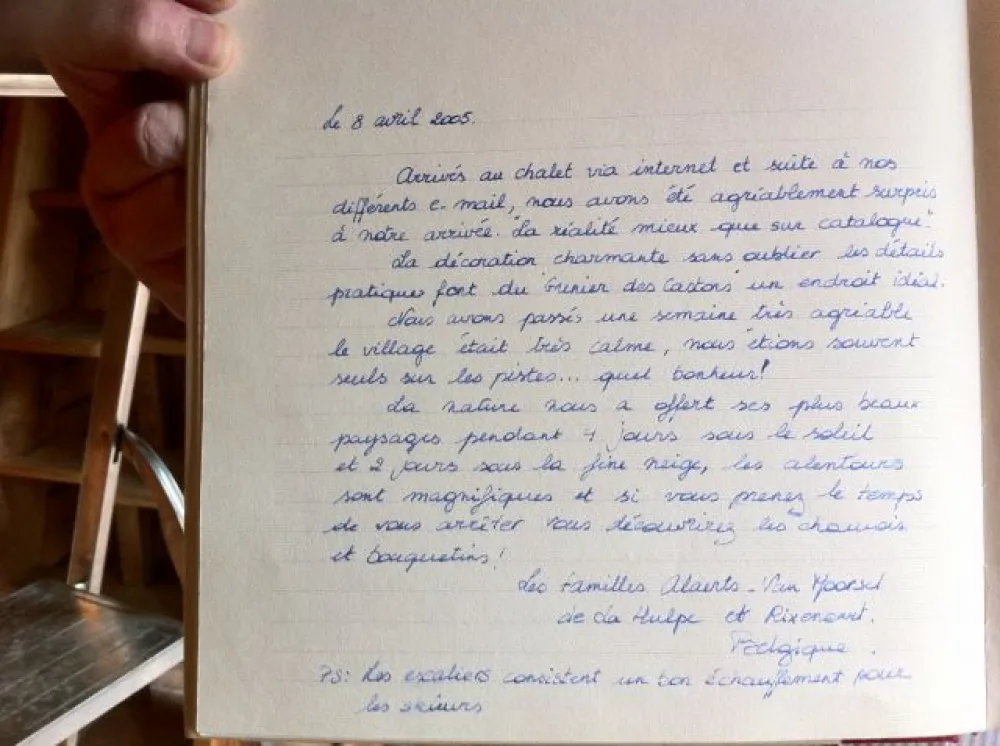 Le 8 avril 2005.
Arrivés au chalet via internet et suite à nos
différents e-mail, nous avons été agréablement surpris
à notre arrivée. "La réalité mieux que sur catalogue".
La décoration charmante sans oublier les détails
pratiques font du "Grenier des Castors" un endroit idéal.
Nous avons passés une semaine très agréable
le village était très calme, nous étions souvent
seuls sur les pistes... quel bonheur!
La nature nous a offert ses plus beaux
paysages pendant 4 jours sous le soleil
et 2 jours sous la fine neige, les alentours
sont magnifiques et si vous prenez le temps
de vous arrêter vous découvrirez les chamois
et bouquetins!
Les familles Alaerts - Van
de La Hulpe et Rixensart.
Belgique.
PS: Les escaliers consistent un bon échauffement pour
les skieurs